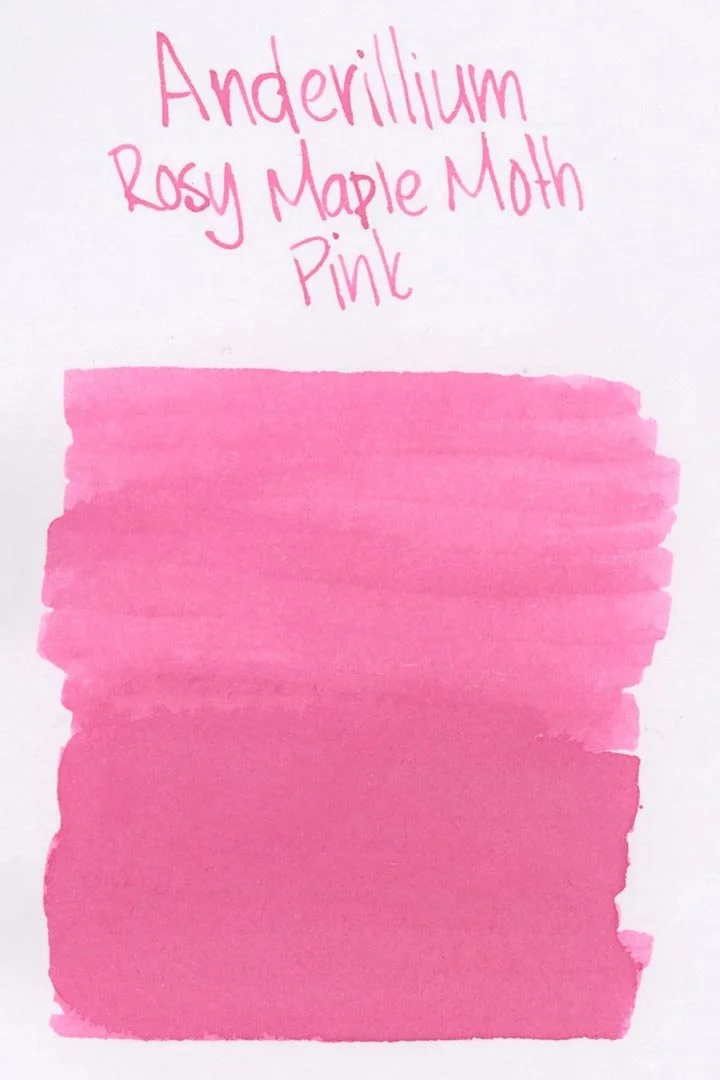 Anderillium
Rosy Maple Moth
Pink